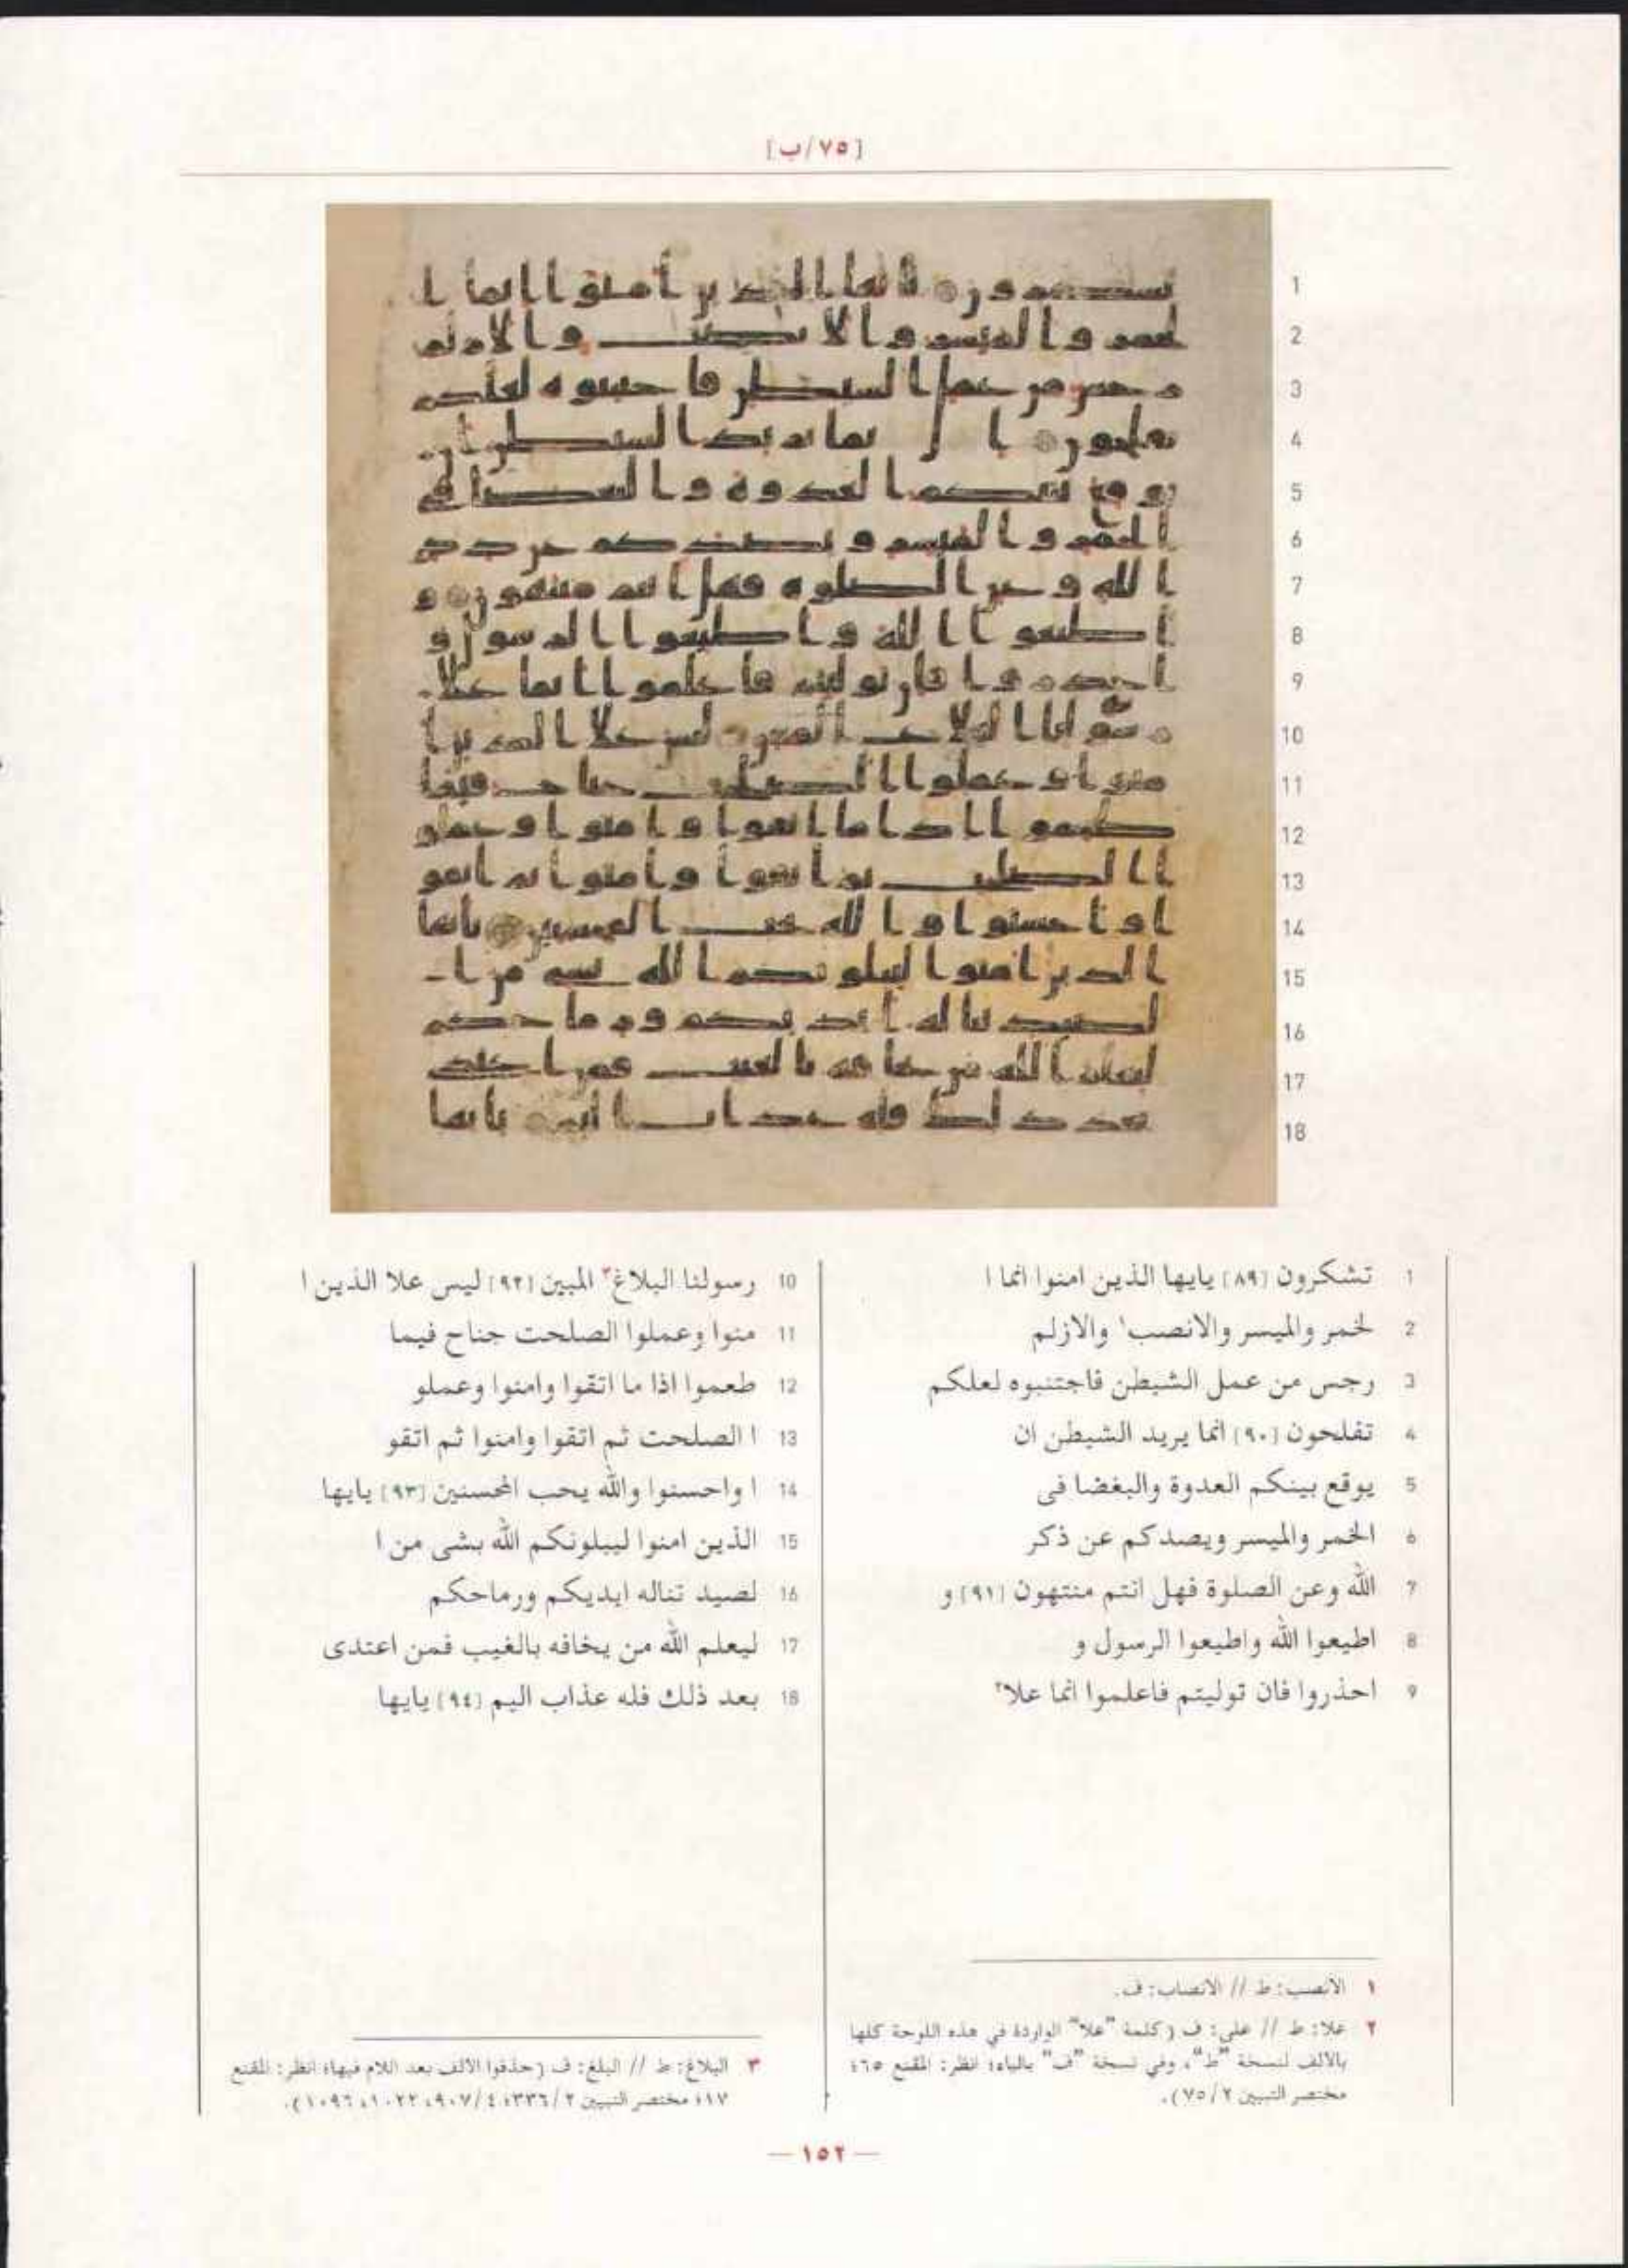 [٧٥/ب]
1 تشكرون [٨٩] يايها الذين امنوا انما ا
2 لخمر والميسر والانصب١ والازلم
3 رجس من عمل الشيطن فاجتنبوه لعلكم
4 تفلحون [٩٠] انما يريد الشيطن ان
5 يوقع بينكم العدوة والبغضا فى
6 الخمر والميسر ويصدكم عن ذكر
7 الله وعن الصلوة فهل انتم منتهون [٩١] و
8 اطيعوا الله واطيعوا الرسول و
9 احذروا فان توليتم فاعلموا انما علا٢
10 رسولنا البلاغ٣ المبين [٩٢] ليس علا الذين ا
11 منوا وعملوا الصلحت جناح فيما
12 طعموا اذا ما اتقوا وامنوا وعملو
13 ا الصلحت ثم اتقوا وامنوا ثم اتقو
14 ا واحسنوا والله يحب المحسنين [٩٣] يايها
15 الذين امنوا ليبلونكم الله بشى من ا
16 لصيد تناله ايديكم ورماحكم
17 ليعلم الله من يخافه بالغيب فمن اعتدى
18 بعد ذلك فله عذاب اليم [٩٤] يايها
١ الانصب: ط // الانصاب: ف.
٢ علا: ط // على: ف (كلمة "علا" الواردة في هذه اللوحة كلها
بالالف لنسخة "ط"، وفي نسخة "ف" بالياء؛ انظر: المقنع ٦٥؛
مختصر التبيين ٧٥/٢).
٣ البلاغ: ط // البلغ: ف (حذفوا الالف بعد اللام فيها؛ انظر: المقنع
١٧؛ مختصر التبيين ٣٣٦/٢؛ ٩٠٧/٤، ١٠٢٢، ١٠٩٦).
— ١٥٢ —